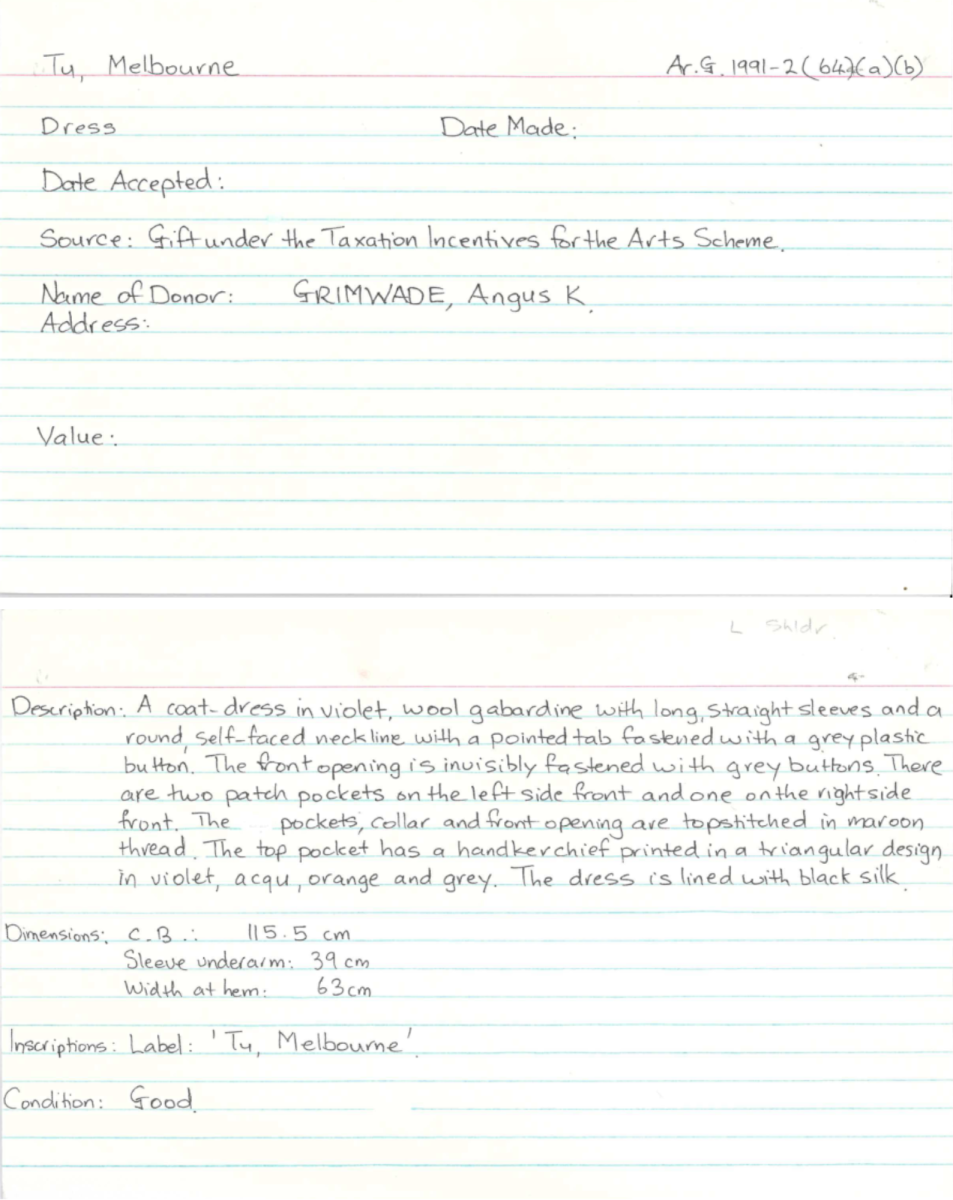 Tu, Melbourne Ar.G. 1991-2(64)(a)(b)
Dress Date Made:
Date Accepted:
Source: Gift under the Taxation Incentives for the Arts Scheme.
Name of Donor: GRIMWADE, Angus K.
Address:
Value:
L Shldr.
Description: A coat-dress in violet, wool gabardine with long, straight sleeves and a
round, self-faced neckline with a pointed tab fastened with a grey plastic
button. The front opening is invisibly fastened with grey buttons. There
are two patch pockets on the left side front and one on the right side
front. The pockets, collar and front opening are topstitched in maroon
thread. The top pocket has a handkerchief printed in a triangular design
in violet, acqu, orange and grey. The dress is lined with black silk.
Dimensions: C.B.: 115.5 cm
Sleeve underarm: 39 cm
Width at hem: 63cm
Inscriptions: Label: 'Tu, Melbourne'.
Condition: Good.